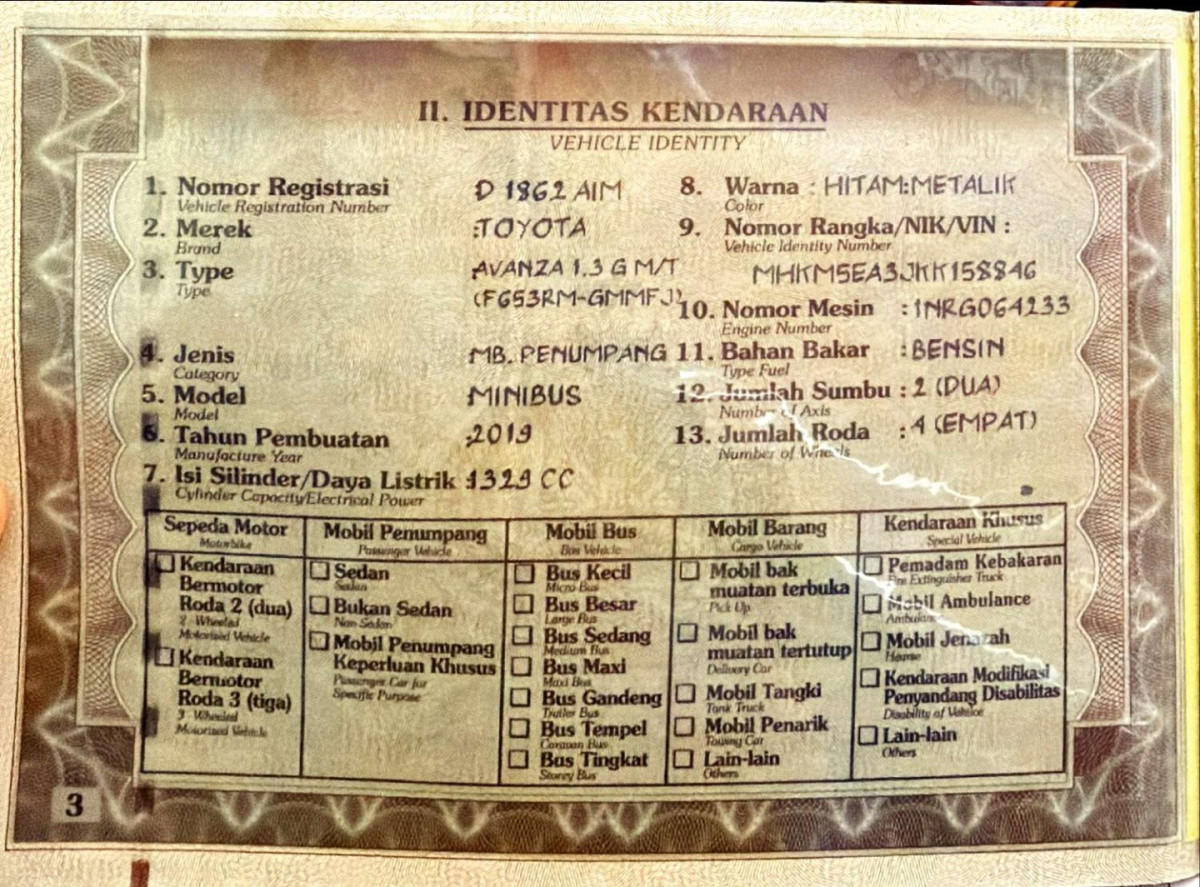 II. IDENTITAS KENDARAAN
VEHICLE IDENTITY
1. Nomor Registrasi D 1862 AIM
Vehicle Registration Number
2. Merek :TOYOTA
Brand
3. Type AVANZA 1.3 G M/T
Type (F653RM-GMMFJ)
4. Jenis MB. PENUMPANG
Category
5. Model MINIBUS
Model
6. Tahun Pembuatan :2019
Manufacture Year
7. Isi Silinder/Daya Listrik 1329 CC
Cylinder Capacity/Electrical Power
8. Warna : HITAM:METALIK
Color
9. Nomor Rangka/NIK/VIN :
Vehicle Identity Number
MHKM5EA3JKK158846
10. Nomor Mesin : 1NRG064233
Engine Number
11. Bahan Bakar : BENSIN
Type Fuel
12. Jumlah Sumbu : 2 (DUA)
Number of Axis
13. Jumlah Roda : 4 (EMPAT)
Number of Wheels
Sepeda Motor
Motorbike
Kendaraan
Bermotor
Roda 2 (dua)
2 Wheeled
Motorised Vehicle
Kendaraan
Bermotor
Roda 3 (tiga)
3 Wheeled
Motorised Vehicle
Mobil Penumpang
Passenger Vehicle
Sedan
Sedan
Bukan Sedan
Non Sedan
Mobil Penumpang
Keperluan Khusus
Passenger Car for
Specific Purpose
Mobil Bus
Bus Vehicle
Bus Kecil
Micro Bus
Bus Besar
Large Bus
Bus Sedang
Medium Bus
Bus Maxi
Maxi Bus
Bus Gandeng
Trailer Bus
Bus Tempel
Caravan Bus
Bus Tingkat
Storey Bus
Mobil Barang
Cargo Vehicle
Mobil bak
muatan terbuka
Pick Up
Mobil bak
muatan tertutup
Delivery Car
Mobil Tangki
Tank Truck
Mobil Penarik
Towing Car
Lain-lain
Others
Kendaraan Khusus
Special Vehicle
Pemadam Kebakaran
Fire Extinguisher Truck
Mobil Ambulance
Ambulance
Mobil Jenazah
Hearse
Kendaraan Modifikasi
Penyandang Disabilitas
Disability of Vehicle
Lain-lain
Others
3